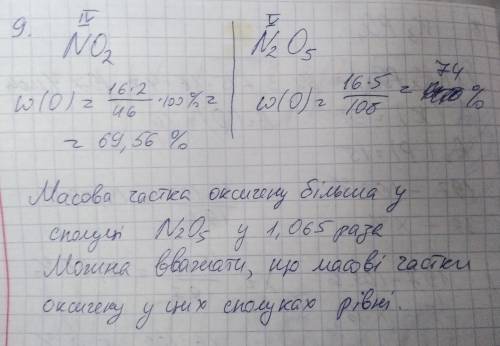 9.
IV V
NO₂ N₂O₅
w(O) = 16·2/46 ·100% = w(O) = 16·5/108 = 74 %
= 69,56 %
Масова частка оксигену більша у
сполуці N₂O₅ у 1,065 раза
Можна вважати, що масові частки
оксигену у цих сполуках рівні.